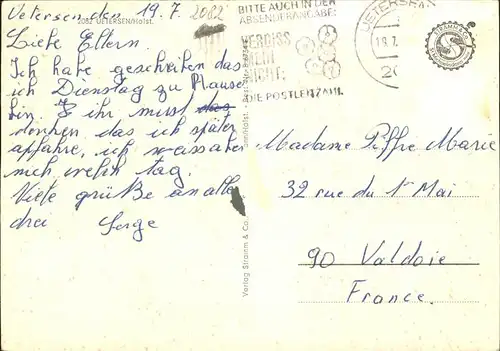 Uetersen den 19.7. 2082
2082 UETERSEN/Holst.
Liebe Eltern.
Ich habe geschreiben das
ich Dienstag zu Hause
bin. I ihr must das
denken das ich später
apfahre, ich weiss aber
mich welch tag.
Viele grüße an alle
drei Serge
BITTE AUCH IN DER
ABSENDERANGABE:
VERGISS
MEIN
NICHT:
DIE POSTLEITZAHL
UETERSEN
19.7.
20
STRAMM & CO.
Verlag Stramm & Co.
Madame Piffre Marie
32 rue du 1er Mai
90 Valdoie
France.